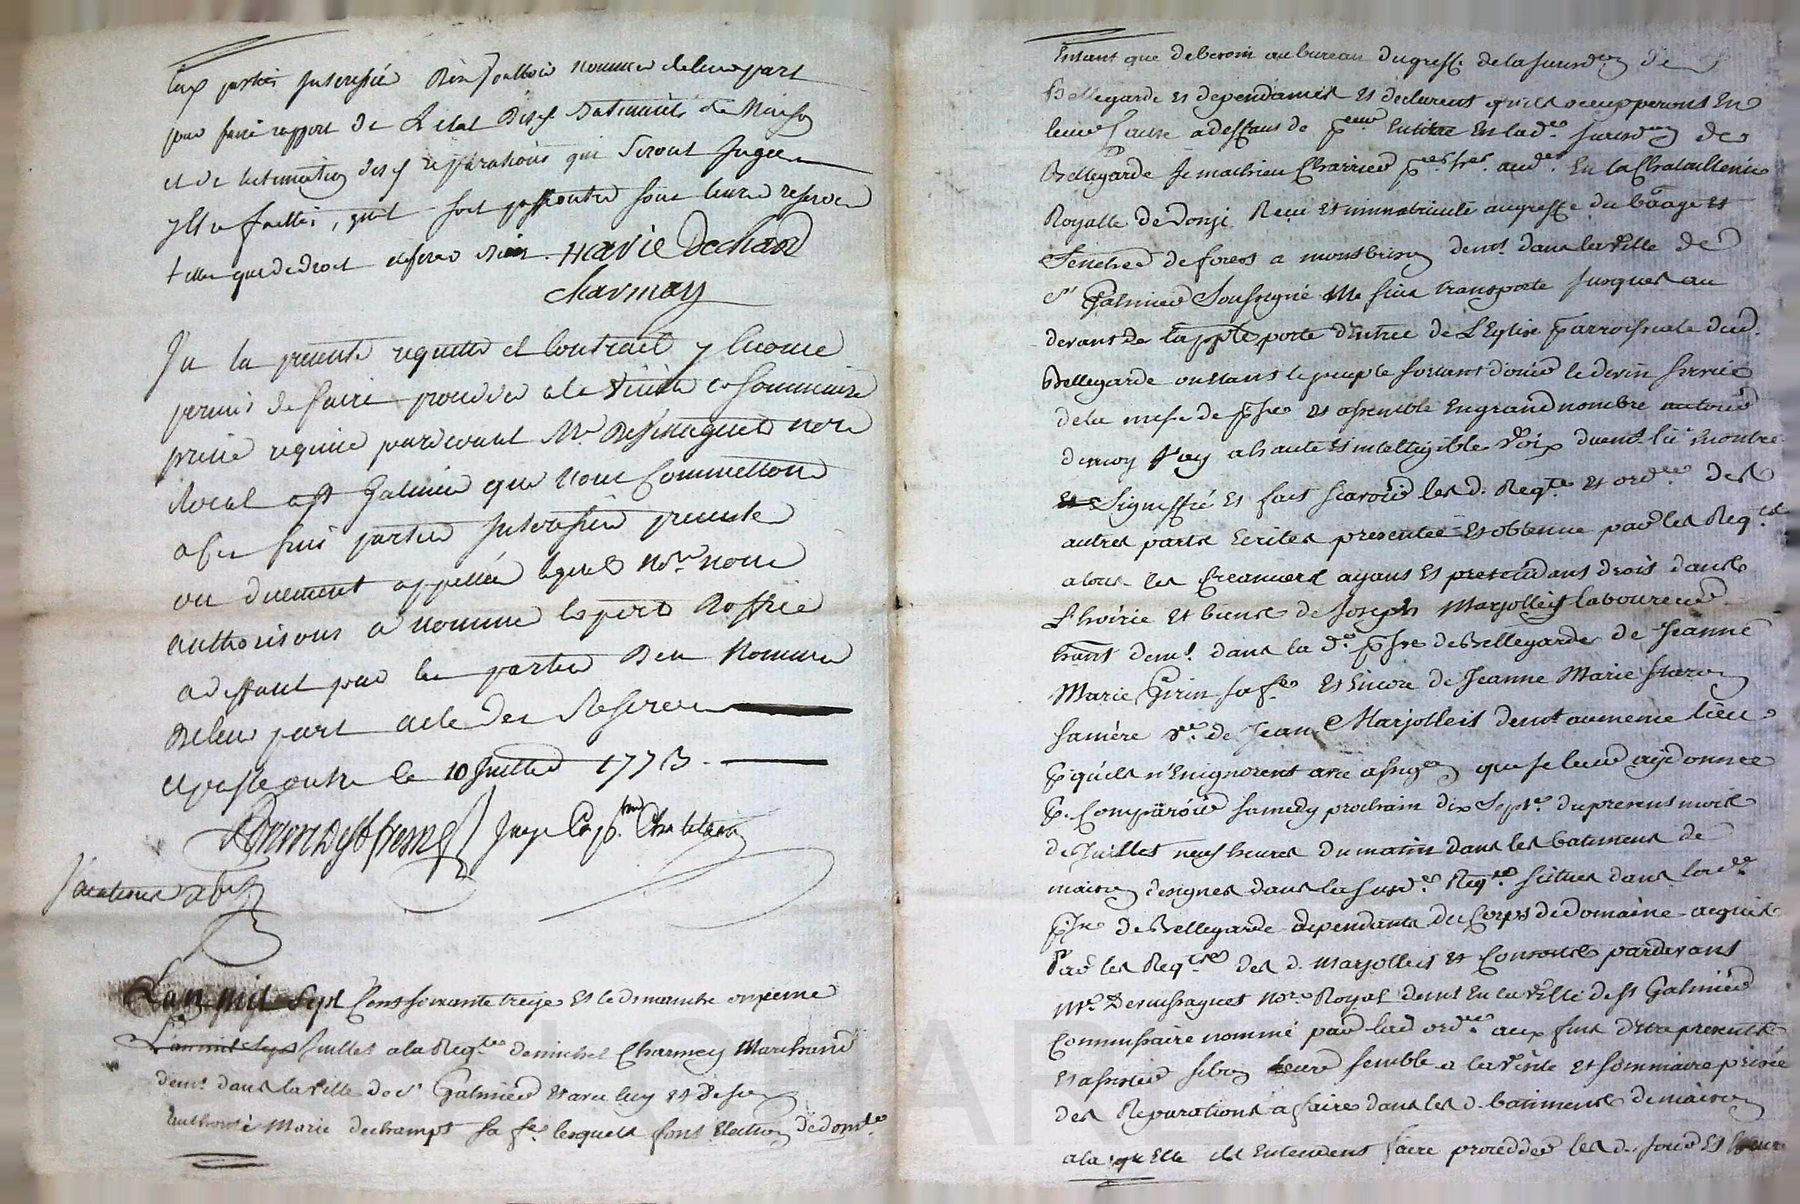 aux parties Interessée d'en nommer de leur part
pour faire rapport de L'état desd. batiments de Maison
et de lestimation desd. reparations qui seront Jugée
y Etre faittes, quil soit passé outre sous leurs reserve
telles que de droit et ferez bien. Marie Dechand
Charmay
Vu la presente requette et Contrat y Enoncé
permis de faire proceder a la visitte et sommaire
prisée requise pardevant Mr Desmagnet notre
Royal a St Galmier que nous Commettons
a ces fins parties Interessée presente
ou duement appellée lequel Nore. nous
authorisons a nommer Experts d'office
a deffaut par les parties d'en Nommer
de leur part acte des Reserves
et passé outre le 10 Juillet 1773.
Juge Capne. Chatelain
L'an mil Sept Cents soixante treize et le dimanche onzieme
L'an mil Sept Juillet a la Reqte. de michel Charmey Marchand
demt. dans la ville de St Galmier et avec luy et de son
authorité Marie dechampt sa fe. lesquels font Election de domle.
Entant que de besoin au bureau du greffe de la Jurisdon. de
Bellegarde et dependances et declarent qu'ils occupperont En
leurs Cause a deffaut de preur. En titre En lade. Jurisdon. de
Bellegarde Je mathieu Charrier En la Chatellenie
Royalle de Donzi Reçu et immatriculé au greffe du Baage et
Senechee de forets a montbrison demt. dans la ville de
St Galmier Soussigné Me suis transporté Jusques au
devant de la pple porte d'entrée de L'Eglise parroissiale dud.
Bellegarde ou etant le peuple sortant d'ouir le divin service
de la messe de psse. et assemblé En grand nombre autour
de moy J'ay a haute et intelligible Voix duemt. lû montré
Signiffié et fait scavoir les d. Reqte. et orde. des
autres parts Ecrites presentée et obtenue par les Reqts.
a tous les Creanciers ayans et pretendans droit dans
L'hoirie et biens de Joseph Marjolleit laboureur
hant demt. dans la de. psse de Bellegarde de Jeanne
Marie Girin sa fe. et Encore de Jeanne Marie
sa mère ve. de Jean Marjolleit demt au meme lieu
Ex qu'ils n'En ignorent avec assigon que Je leur ay donnée
Ex Comparoir samedy prochain dix Sept. du present mois
de Juillet neuf heures du matin dans les batiments de
maison designés dans la susde. Reqte. scitués dans la de.
psse de Bellegarde dependants du Corps de domaine acquis
Par les Reqts. des d. Marjolleit et Consorts pardevant
Mr. Desmagnet Nore. Royal demt En la ville de St Galmier
Commissaire nommé par lad. orde. aux fins d'etre presents
et assister si bon leur semble a la visite et sommaire prisée
des Reparations a faire dans les d. batiments de maison
a la quelle ils Entendent faire proceder les d. Jour et heure